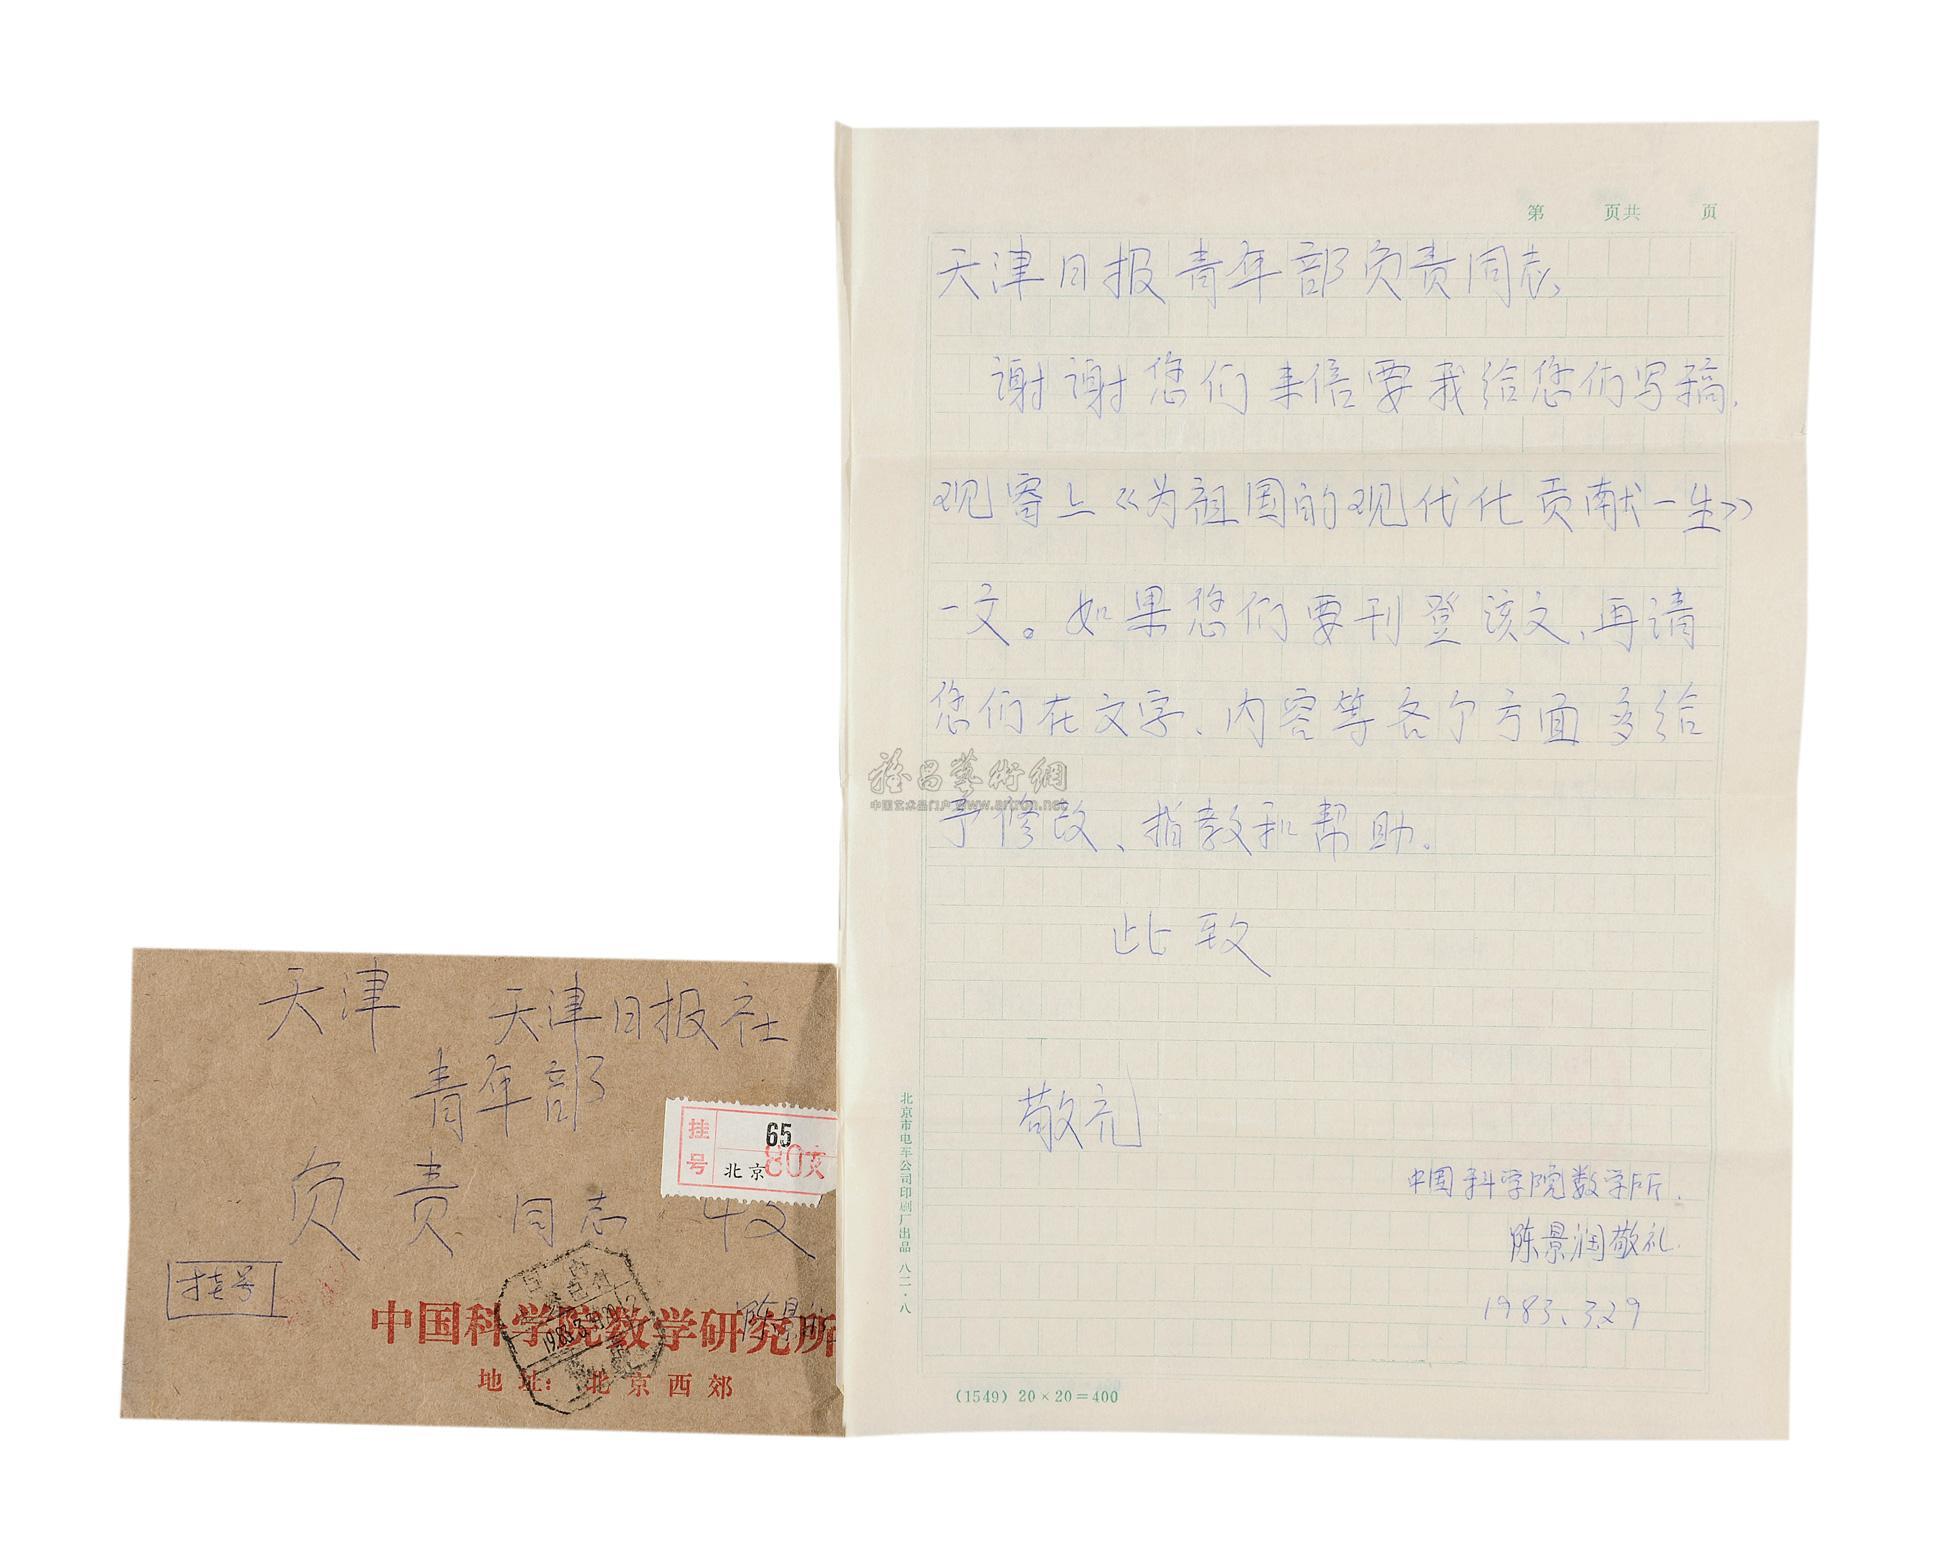 第 页共 页
天津日报青年部负责同志、
谢谢您们来信要我给您们写稿.
现寄上《为祖国的现代化贡献一生》
一文。如果您们要刊登该文、再请
您们在文字、内容等各个方面多给
予修改、指教和帮助.
此致
敬礼
中国科学院数学所.
陈景润敬礼.
1983.3.29
(1549) 20×20=400
北京市电车公司印刷厂出品 八二·八
雅昌藝術網
中国艺术品门户 www.artron.net
天津 天津日报社
青年部
负责同志 收
挂号
65
北京
80支
挂号
中国科学院数学研究所
陈景
1983.3.
地址: 北京西郊